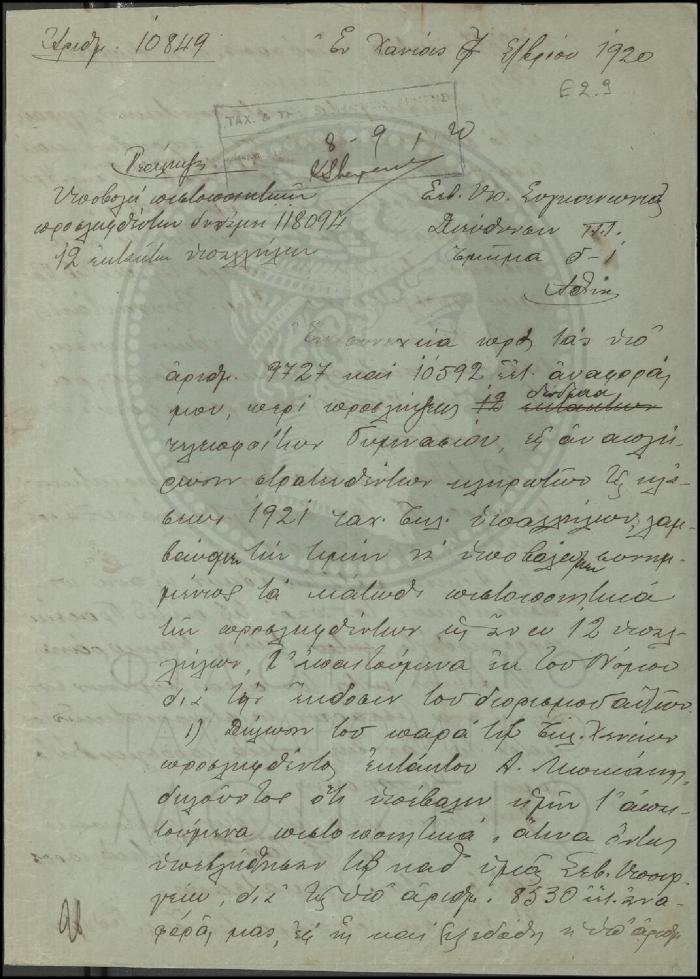 Ἀριθμ. 10849
Ἐν Χανίοις 7 Σ/βρίου 1920
E 2.9
ΤΑΧ. & ΤΗ
8 - 9 1 20
Περίληψις
Ὑποβολὴ πιστοποιητικῶν
προσληφθέντων 118094
12 ἐκτάκτων ὑπαλλήλων
Σεβ. Ὑπ. Συγκοινωνίας
Διεύθυνσιν Τ.Τ.
Τμῆμα δ-1
Ἀθήνας
Ἐν συνεχείᾳ πρὸς τὰς ὑπ'
ἀριθμ. 9727 καὶ 10592 ἐ.ἔ. ἀναφοράς
μου, περὶ προσλήψεως 12 δώδεκα ἐκτάκτων
τελειοφοίτων Γυμνασίου, εἰς ἀναπλή-
ρωσιν στρατευθέντων κληρωτῶν τῆς κλά-
σεως 1921 ταχ. τηλ. ὑπαλλήλων, λαμ-
βάνομεν τὴν τιμὴν νὰ ὑποβάλωμεν συνημ-
μένως τὰ κάτωθι πιστοποιητικὰ
τῶν προσληφθέντων ὡς ἄνω 12 ὑπαλ-
λήλων, τ' ἀπαιτούμενα ἐκ τοῦ Νόμου
διὰ τὴν ἔκδοσιν τοῦ διορισμοῦ αὐτῶν
1) Δήλωσιν τοῦ παρὰ τῷ Τηλ. Χανίων
προσληφθέντος ἐκτάκτου Α.
δηλοῦντος ὅτι ὑπέβαλεν ἡμῖν τ' ἀπαι-
τούμενα πιστοποιητικά, ἅτινα
ὑπεβλήθησαν τῷ καθ' ὑμᾶς Σεβ. Ὑπουρ-
γείῳ, διὰ τῆς ὑπ' ἀριθμ. 8530 ἐ.ἔ. ἀνα-
φορᾶς μας, ἐξ ἧς καὶ ἐξεδόθη ἡ ὑπ' ἀριθμ
98